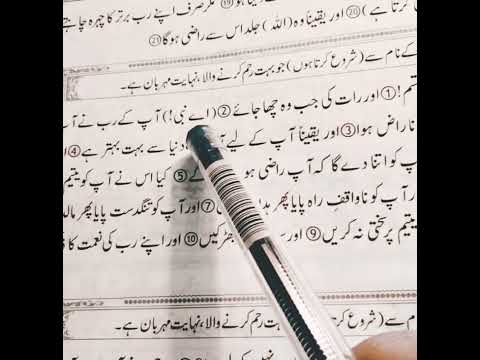 کرتا ہے) ⑳ اور یقیناً وہ (اللہ) جلد اس سے راضی ہوگا ㉑
مگر صرف اپنے رب برتر کا چہرہ چاہنے
کے نام سے (شروع کرتا ہوں) جو بہت رحم کرنے والا، نہایت مہربان ہے۔
قسم! ① اور رات کی جب وہ چھا جائے ② (اے نبی!) آپ کے رب نے آپ
ناراض ہوا ③ اور یقیناً آپ کے لیے دنیا سے بہت بہتر ہے ④
پ کو اتنا دے گا کہ آپ راضی ہو گے ⑤ کیا اس نے آپ کو یتیم
ر آپ کو ناواقف راہ پایا پھر ⑦ اور آپ کو تنگدست پایا پھر
یتیم پر سختی نہ کریں ⑨ اور جھڑکیں ⑩ اور اپنے رب کی نعمت کا
نام سے (شروع بہت رحم کرنے والا، نہایت مہربان ہے۔